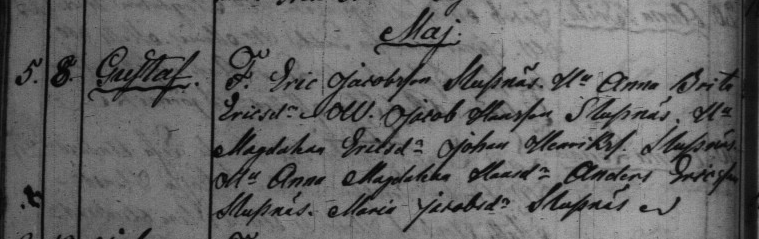 Maj.
5. 8. Gustaf. F. Eric Jacobsson Slussnäs. Hu Anna Brita
Ericsdr W. Jacob Hansson Slussnäs. Hu
Magdalena Ericsdr Johan Henriks. Slussnäs.
Hu Anna Magdalena Hansdr Anders Ericsson
Slussnäs. Maria Jacobsdr Slussnäs